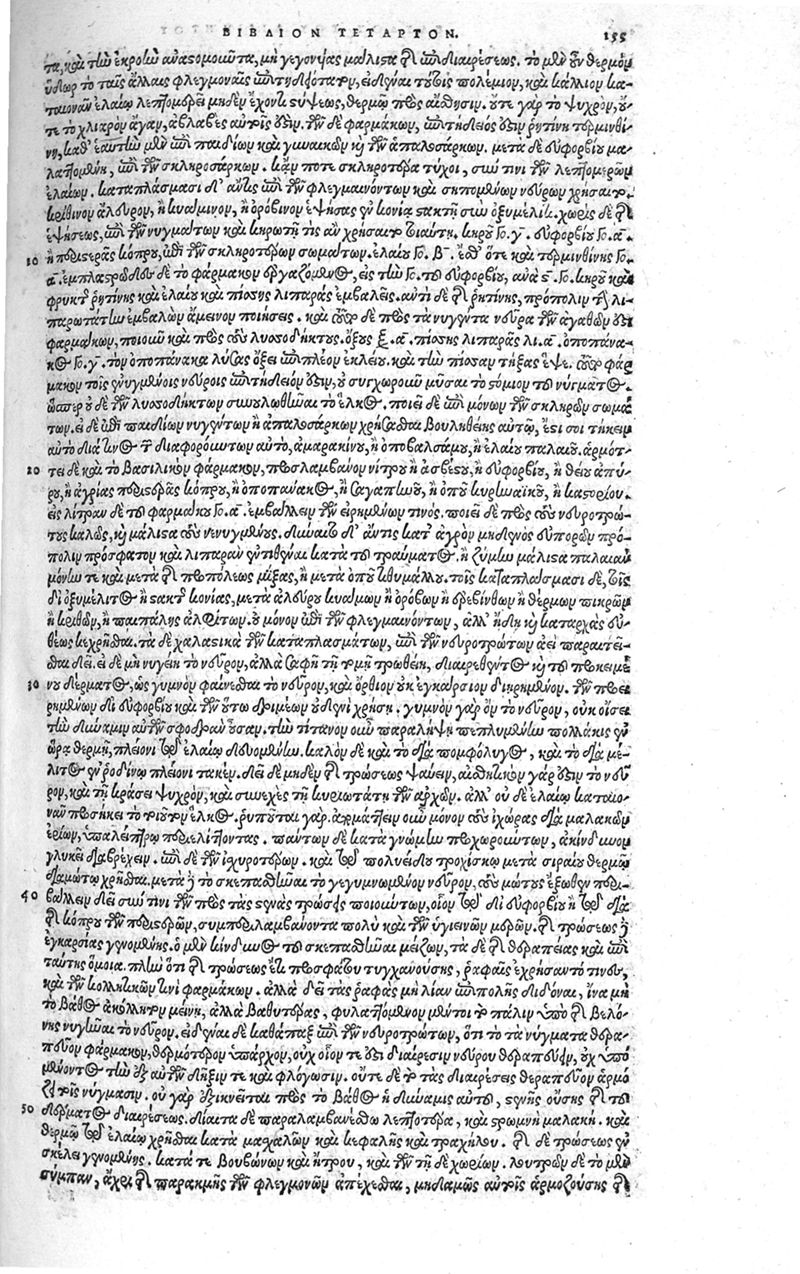 ΒΙΒΛΙΟΝ ΤΕΤΑΡΤΟΝ. 155
τα, καὶ τὴν ἐκροὴν ἀναστομοῦντα, μὴ γεγονυίας μάλιστα τῆς διαιρέσεως. τὸ μὲν οὖν θερμὸν
ὕδωρ τὸ ταῖς ἄλλαις φλεγμοναῖς ἐπιτηδειότατον, εἰδέναι τούτοις πολέμιον, καὶ κάλλιον κα-
ταιονᾶν ἐλαίῳ λεπτομερεῖ μηδὲν ἔχοντι στύψεως, θερμῷ πρὸς αἴσθησιν. οὔτε γὰρ τὸ ψυχρὸν, οὔ
τε τὸ χλιαρὸν ἄγαν, ἀβλαβὲς αὐτοῖς ἐστιν. τῶν δὲ φαρμάκων, ἐπιτήδειός ἐστιν ῥητίνη τερμινθί
νη, καθ' ἑαυτὴν μὲν ἐπὶ παιδίων καὶ γυναικῶν κὴ τῶν ἁπαλοσάρκων. μετὰ δὲ εὐφορβίου μα-
λαττομένη, ἐπὶ τῶν σκληροσάρκων. κἄν ποτε σκληροτέρα τύχοι, σύν τινι τῶν λεπτομερῶν
ἐλαίων. καταπλάσμασι δ' αὖθις ἐπὶ τῶν φλεγμαινόντων καὶ σηπομένων νεύρων χρῆσαι τὸ
κρίθινον ἄλευρον, ἢ κυάμινον, ἢ ὀρόβινον ἑψήσας ἐν κονίᾳ στακτῇ σὺν ὀξυμέλιτι. χωρὶς δὲ τῆς
ἑψήσεως, ἐπὶ τῶν νυγμάτων καὶ κηρωτῇ τις ἂν χρήσαιτο τοιαύτῃ. κηροῦ Γο. γ. εὐφορβίου Γο. α.
10 ἢ περιστερᾶς κόπρου, ἐπὶ τῶν σκληροτέρων σωμάτων. ἐλαίου Γο. β. ἔσθ' ὅτε καὶ τερμινθίνης Γο.
α. ἐμπλαστρῶδες δὲ τὸ φάρμακον ἐργαζόμενος, εἰς τὴν Γο. τοῦ εὐφορβίου, ἀνὰ ς. Γο. κηροῦ καὶ
φρυκτῆς ῥητίνης καὶ ἐλαίου καὶ πίσσης λιπαρᾶς ἐμβαλεῖς. ἀντὶ δὲ τῆς ῥητίνης, πρόπολιν τὴν λι-
παρωτάτην ἐμβαλὼν ἄμεινον ποιήσεις. καὶ τοῦτο δὲ πρὸς τὰ νυγέντα νεῦρα τῶν ἀγαθῶν ἐστι
φαρμάκων, ποιοῦν καὶ πρὸς τοὺς λυσσοδήκτους. ὄξους ξ. α. πίσσης λιπαρᾶς λι. α. ὀποπάνα-
κος Γο. γ. τὸν ὀποπάνακα λύσας ὄξει ἐπιπλέον ἐκλείου. καὶ τὴν πίσσαν τήξας ἕψε. τοῦτο φάρ-
μακον τοῖς νενυγμένοις νεύροις ἐπιτήδειόν ἐστιν, οὐ συγχωροῦν μῦσαι τὸ στόμιον τοῦ νύγματος.
ὥσπερ οὐδὲ τῶν λυσσοδήκτων συνουλωθῆναι τὸ ἕλκος. ποιεῖ δὲ ἐπὶ μόνων τῶν σκληρῶν σωμά
των. εἰ δὲ ἐπὶ παιδίων νυγέντων ἢ ἁπαλοσάρκων χρῆσθαι βουληθείης αὐτῷ, ἔστι σοι τήκειν
αὐτὸ διά τινος τῶν διαφορούντων αὐτὸ, ἀμαρακίνου, ἢ ὀποβαλσάμου, ἢ ἐλαίου παλαιοῦ. ἁρμότ-
20 τει δὲ καὶ τὸ βασιλικὸν φάρμακον, προσλαμβάνον νίτρου ἢ ἀσβέστου, ἢ εὐφορβίου, ἢ θείου ἀπύ-
ρου, ἢ ἀγρίας περιστερᾶς κόπρου, ἢ ὀποπάνακος, ἢ σαγαπηνοῦ, ἢ ὀποῦ κυρηναϊκοῦ, ἢ καστορίου.
εἰς λίτραν δὲ τοῦ φαρμάκου Γο. α. ἐμβάλλειν τῶν εἰρημένων τινός. ποιεῖ δὲ πρὸς τοὺς νευροτρώ-
τους καλῶς, κὴ μάλιστα τοὺς νενυγμένους. δύναιτο δ' ἄν τις κατ' ἀγρὸν μηδενὸς εὐπορῶν πρό-
πολιν πρόσφατον καὶ λιπαρὰν ἐντιθέναι κατὰ τοῦ τραύματος. ἢ ζύμην μάλιστα παλαιὰν
μόνην τε καὶ μετὰ τῆς προπόλεως μίξας, ἢ μετὰ ὀποῦ τιθυμάλλου. τοῖς καταπλάσμασι δὲ, τοῖς
δι' ὀξυμέλιτος ἢ στακτῆς κονίας, μετὰ ἀλεύρου κυάμων ἢ ὀρόβων ἢ ἐρεβίνθων ἢ θέρμων πικρῶν
ἢ κριθῶν, ἢ παιπάλης ἀλφίτου. οὐ μόνον ἐπὶ τῶν φλεγμαινόντων, ἀλλ' ἤδη κὴ καταρχὰς εὐ-
θέως κεχρῆσθαι. τὰ δὲ χαλαστικὰ τῶν καταπλασμάτων, ἐπὶ τῶν νευροτρώτων ἀεὶ παραιτεῖ-
σθαι δεῖ. εἰ δὲ μὴ νυγείη τὸ νεῦρον, ἀλλὰ σαφῆ τομῇ τρωθείη, διαιρεθέντος κὴ τοῦ προκειμέ
30 νου δέρματος, ὡς γυμνὸν φαίνεσθαι τὸ νεῦρον, καὶ ὄρθιον οὐκ ἐγκάρσιον διῃρημένον. τῶν προει
ρημένων δι' εὐφορβίου καὶ τῶν οὕτω δριμέων οὐδενὶ χρήσῃ. γυμνὸν γὰρ ὂν τὸ νεῦρον, οὐκ οἴσει
τὴν δύναμιν αὐτῶν σφοδρὰν οὖσαν. τὴν τίτανον οὖν παραλήψῃ πεπλυμένην πολλάκις ἐν
ὥρᾳ θερμῇ, πλείονι τῷ ἐλαίῳ δευομένην. καλὸν δὲ καὶ τὸ διὰ πομφόλυγος, καὶ τὸ διὰ μέ-
λιτος ἐν ῥοδίνῳ πλείονι τακέν. δεῖ δὲ μηδὲν τῆς τρώσεως ψαύειν, αἰσθητικὸν γάρ ἐστιν τὸ νεῦ
ρον, καὶ τῇ κράσει ψυχρὸν, καὶ συνεχὲς τῇ κυριωτάτῃ τῶν ἀρχῶν. ἀλλ' οὐδὲ ἐλαίῳ καταιο-
νᾶν προσήκει τὸ τοιοῦτον ἕλκος. ῥυποῦται γάρ. ἀπομάττειν οὖν μόνον τοὺς ἰχῶρας διὰ μαλακῶν
ἐρίων, ὑπαλείπτρῳ περιελίττοντας. πάντων δὲ κατὰ γνώμην προχωρούντων, ἀκίνδυνον
γλυκεῖ διαβρέχειν. ἐπὶ δὲ τῶν ἰσχυροτέρων. καὶ τῷ πολυείδου τροχίσκῳ μετὰ σιραίου θερμῷ
διαμώτῳ χρῆσθαι. μετὰ δὲ τὸ σκεπασθῆναι τὸ γεγυμνωμένον νεῦρον, τοὺς μώτους ἔξωθεν περι-
40 βάλλειν δεῖ σύν τινι τῶν πρὸς τὰς στενὰς τρώσεις ποιούντων, οἷον τῷ δι' εὐφορβίου ἢ τῷ διὰ
τῆς κόπρου τῶν περιστερῶν, συμπεριλαμβάνοντα πολὺ καὶ τῶν ὑγιεινῶν μερῶν. τῆς τρώσεως δὲ
ἐγκαρσίας γενομένης. ὁ μὲν κίνδυνος τοῦ σκεπασθῆναι μείζων, τὰ δὲ τῆς θεραπείας καὶ ἐπὶ
ταύτης ὅμοια. πλὴν ὅτι τῆς τρώσεως ἔτι προσφάτου τυγχανούσης, ῥαφαῖς ἐχρήσαντό τινες,
καὶ τῶν κολλητικῶν τινι φαρμάκων. ἀλλὰ δεῖ τὰς ῥαφὰς μὴ λίαν ἐπιπολῆς διδόναι, ἵνα μὴ
τὸ βάθος ἀκόλλητον μείνῃ, ἀλλὰ βαθυτέρας, φυλαττόμενον μέντοι τὸ πάλιν ὑπὸ τῆς βελό-
νης νυγῆναι τὸ νεῦρον. εἰδέναι δὲ καθάπαξ ἐπὶ τῶν νευροτρώτων, ὅτι τὸ τὰ νύγματα θερα-
πεῦον φάρμακον, θερμότερον ὑπάρχον, οὐχ οἷόν τε ἐστι διαίρεσιν νεύρου θεραπεύειν, οὐχ ὑπο
μένοντος τὴν ἐξ αὐτῶν δῆξίν τε καὶ φλόγωσιν. οὔτε δὲ τὸ τὰς διαιρέσεις θεραπεῦον ἁρμό
ζει τοῖς νύγμασιν. οὐ γὰρ ἐξικνεῖται πρὸς τὸ βάθος ἡ δύναμις αὐτοῦ, στενῆς οὔσης τῆς τοῦ
50 δέρματος διαιρέσεως. δίαιτα δὲ παραλαμβανέσθω λεπτοτέρα, καὶ στρωμνὴ μαλακή. καὶ
θερμῷ τῷ ἐλαίῳ χρῆσθαι κατὰ μασχαλῶν καὶ κεφαλῆς καὶ τραχήλου. τῆς δὲ τρώσεως ἐν
σκέλει γενομένης. κατά τε βουβώνων καὶ ἤτρου, καὶ τῶν τῇδε χωρίων. λουτρῶν δὲ τὸ μὲν
σύμπαν, ἄχρι τῆς παρακμῆς τῶν φλεγμονῶν ἀπέχεσθαι, μηδαμῶς αὐτοῖς ἁρμοζούσης τῆς